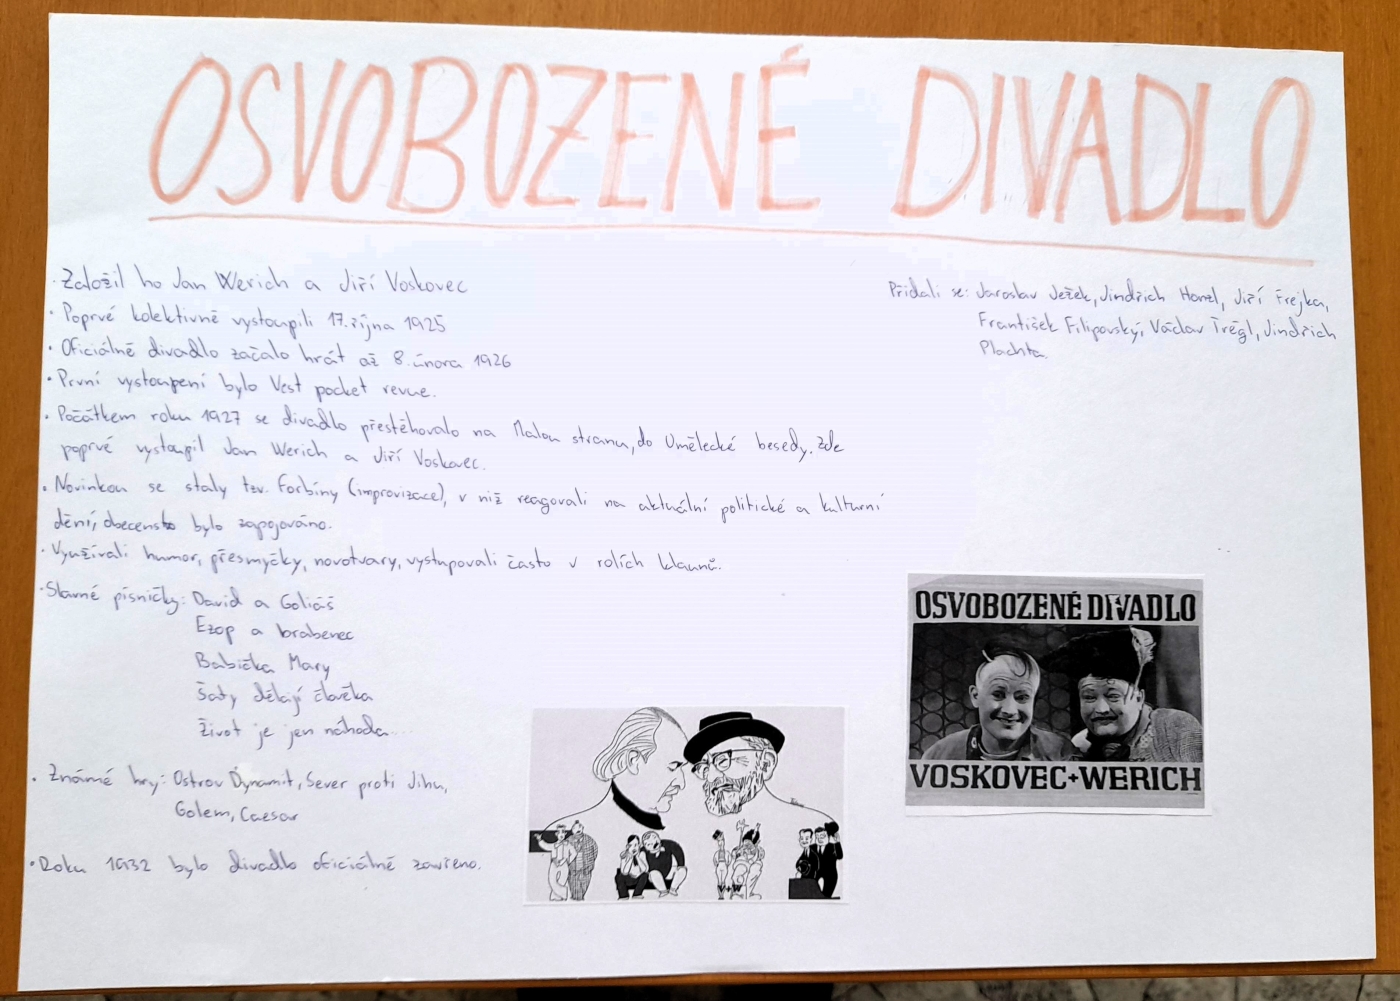 OSVOBOZENÉ DIVADLO
· Založil ho Jan Werich a Jiří Voskovec
· Poprvé kolektivně vystoupili 17. října 1925
· Oficiálně divadlo začalo hrát až 8. února 1926
· První vystoupení bylo Vest pocket revue.
· Počátkem roku 1927 se divadlo přestěhovalo na Malou stranu, do Umělecké besedy. Zde
poprvé vystoupil Jan Werich a Jiří Voskovec.
· Novinkou se staly tzv. Forbíny (improvizace), v niž reagovali na aktuální politické a kulturní
dění, obecenstvo bylo zapojováno.
· Využívali humor, přesmyčky, novotvary, vystupovali často v rolích klaunů.
· Slavné písničky: David a Goliáš
Ezop a brabenec
Babička Mary
Šaty dělají člověka
Život je jen náhoda...
· Známé hry: Ostrov Dynamit, Sever proti Jihu,
Golem, Caesar
· Roku 1932 bylo divadlo oficiálně zavřeno.
Přidali se: Jaroslav Ježek, Jindřich Honzl, Jiří Frejka,
František Filipovský, Václav Trégl, Jindřich
Plachta.
OSVOBOZENÉ DIVADLO
VOSKOVEC+WERICH
V+W